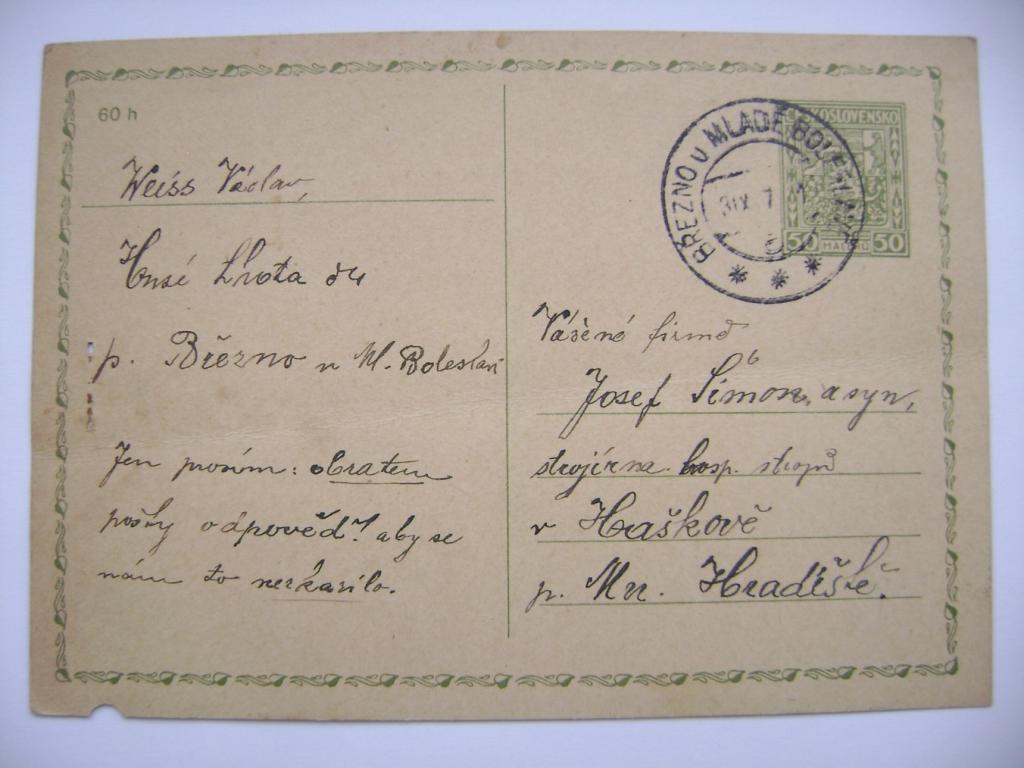 60 h
Weiss Václav,
Lhota 34
p. Březno u Ml. Boleslavi
Jen prosím: obratem
pošty odpověď! aby se
nám to nezkazilo.
BŘEZNO U MLADÉ BOLESLAVĚ
ČESKOSLOVENSKO
50 HALÉŘŮ 50
Vážené firmě
Josef Šimon a syn,
strojírna hosp. strojů
v Haškově
p. Mn. Hradiště.